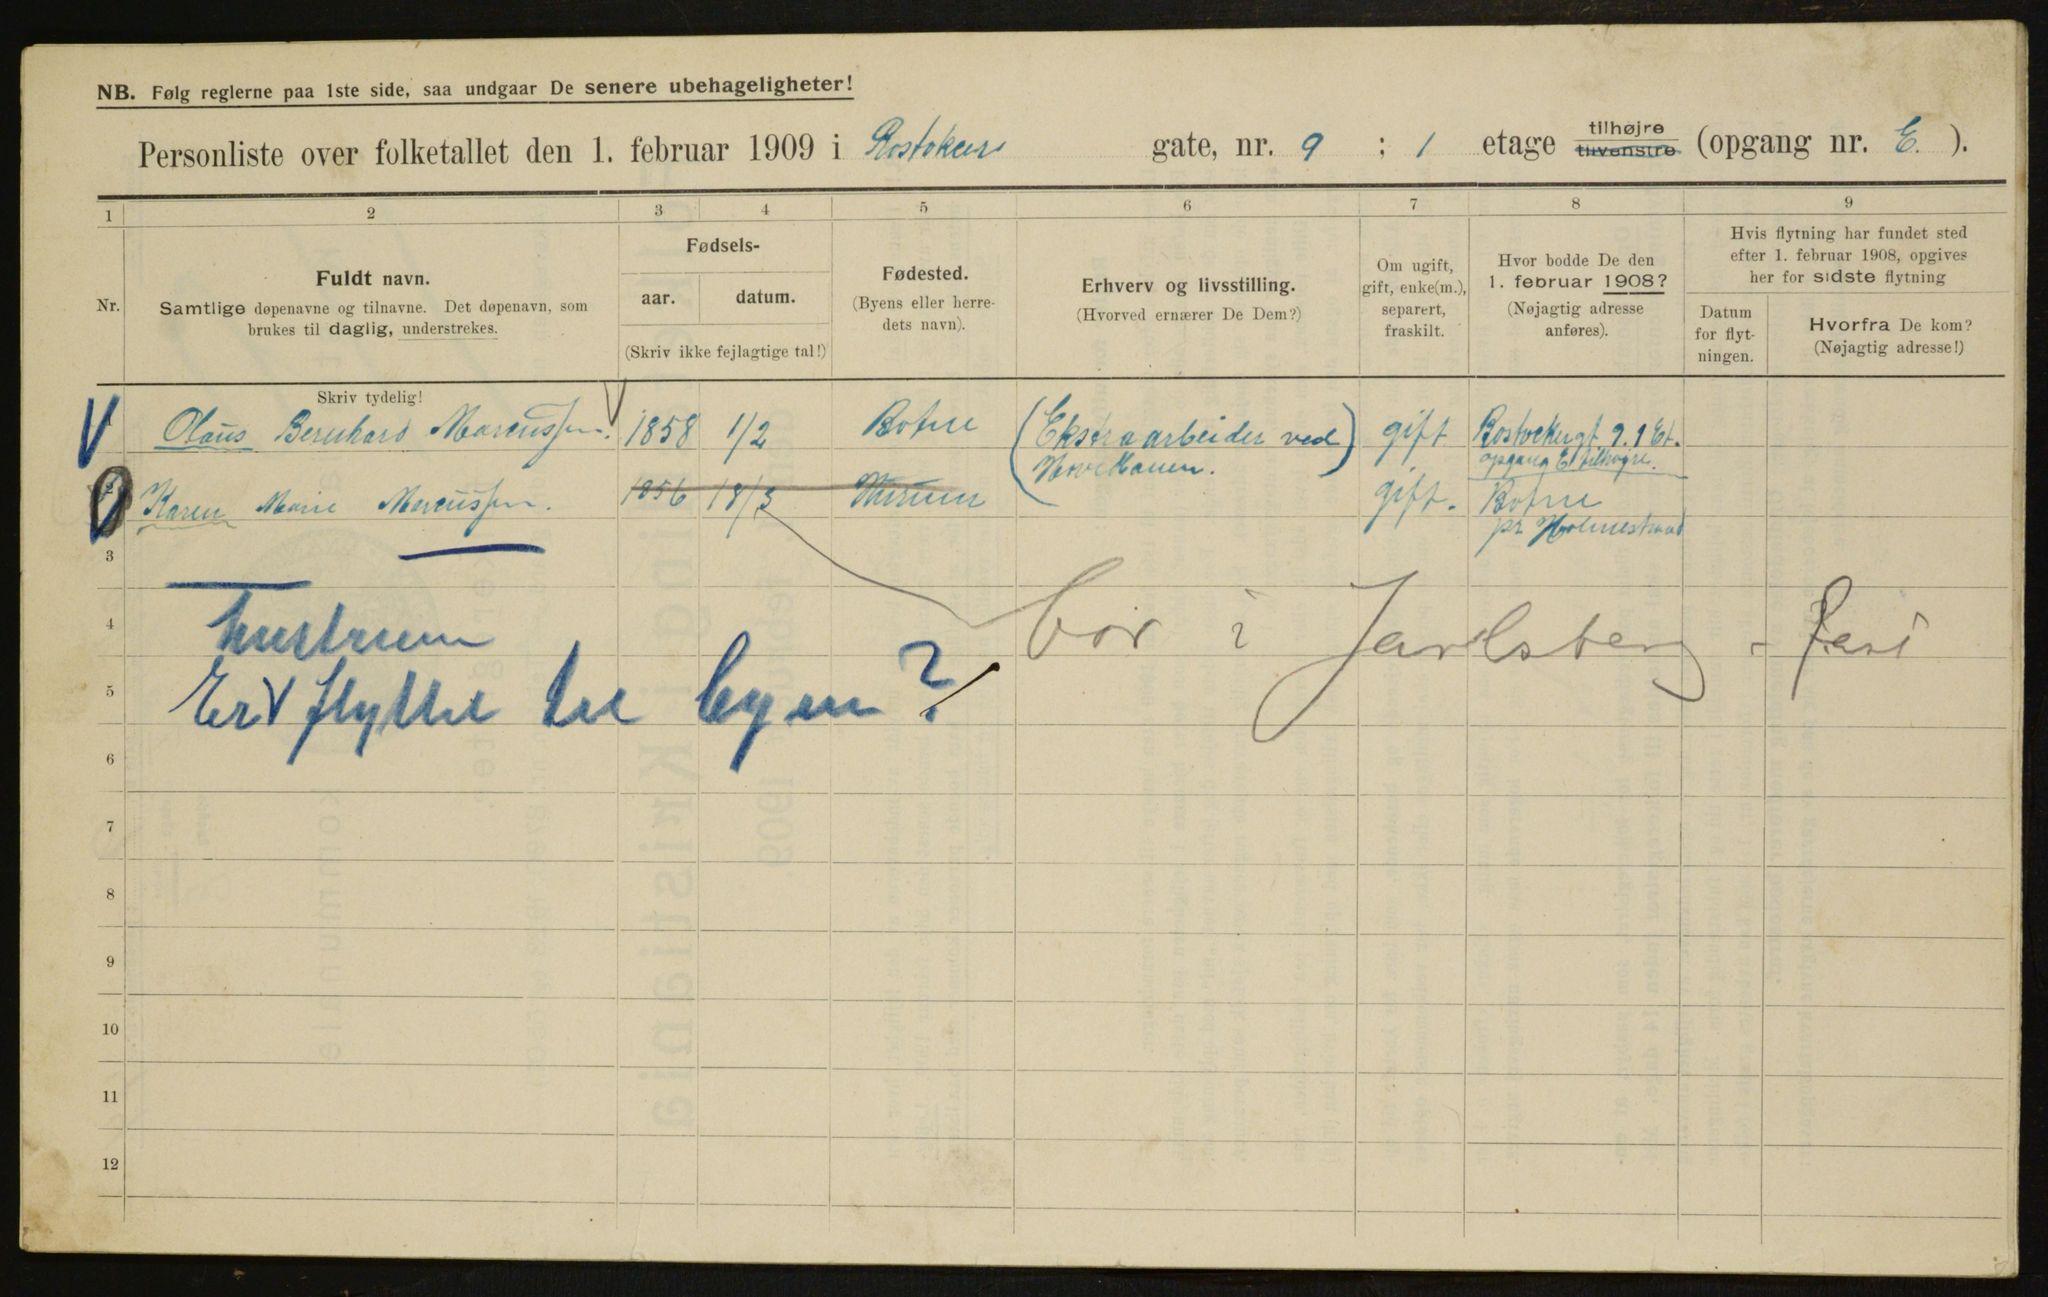 NB. Følg reglerne paa 1ste side, saa undgaar De senere ubehageligheter!
Personliste over folketallet den 1. februar 1909 i Rostokers gate, nr. 9 ; 1 etage tilhøjre tilvenstre (opgang nr. E. ).
1 2 3 4 5 6 7 8 9
Nr.
Fuldt navn.
Samtlige døpenavne og tilnavne. Det døpenavn, som
brukes til daglig, understrekes.
Fødsels-
aar. datum.
(Skriv ikke fejlagtige tal!)
Fødested.
(Byens eller herre-
dets navn).
Erhverv og livsstilling.
(Hvorved ernærer De Dem?)
Om ugift,
gift, enke(m.),
separert,
fraskilt.
Hvor bodde De den
1. februar 1908?
(Nøjagtig adresse
anføres).
Hvis flytning har fundet sted
efter 1. februar 1908, opgives
her for sidste flytning
Datum
for flyt-
ningen.
Hvorfra De kom?
(Nøjagtig adresse!)
Skriv tydelig!
1 Olaus Bernhard Marcussen. 1858 1/2 Botne (Ekstraarbeider ved gift Rostockergt. 9. 1 Et.
opgang E tilhøjre.
2 Karen Marie Marcussen. 1856 18/3 gift. Botne
pr Holmestrand
3
4 hustruen
bor i Jarlsberg
5 Er flyttet til byen?
6
7
8
9
10
11
12